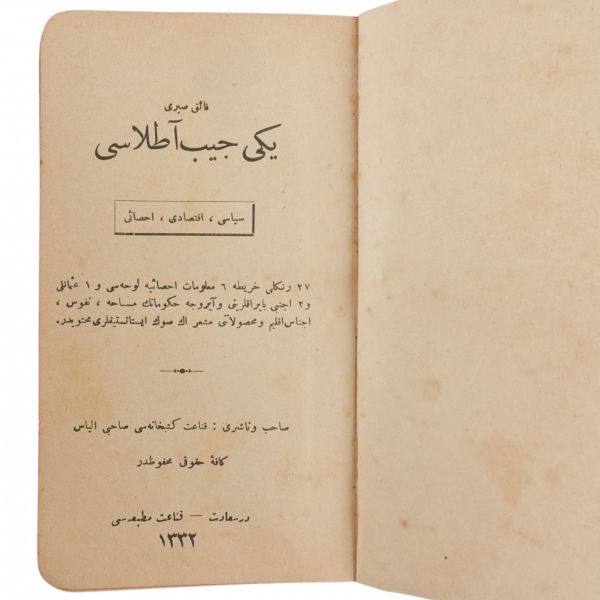 فائق صبری
یکی جیب آطلاسی
سیاسی ، اقتصادی ، احصائی
٢٧ رنکلی خریطه ٦ معلومات احصائیه لوحه‌سی و ١ عثمانلی
و ٢ اجنبی بایراقلرینی و آیروجه حکوماتك مساحه ، نفوس ،
اجناس اقلیم و محصولاتی مشعر اك صوك ایستاتستیقلری محتویدر.
صاحب و ناشری : قناعت کتبخانه‌سی صاحبی الیاس
کافۀ حقوقی محفوظدر
درسعادت — قناعت مطبعه‌سی
١٣٣٢